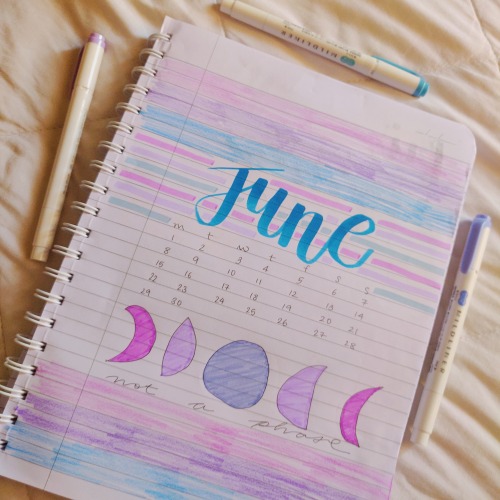 MILDLINER
June
m t w t f s s
1 2 3 4 5 6 7
8 9 10 11 12 13 14
15 16 17 18 19 20 21
22 23 24 25 26 27 28
29 30
not a phase
MILDLINER